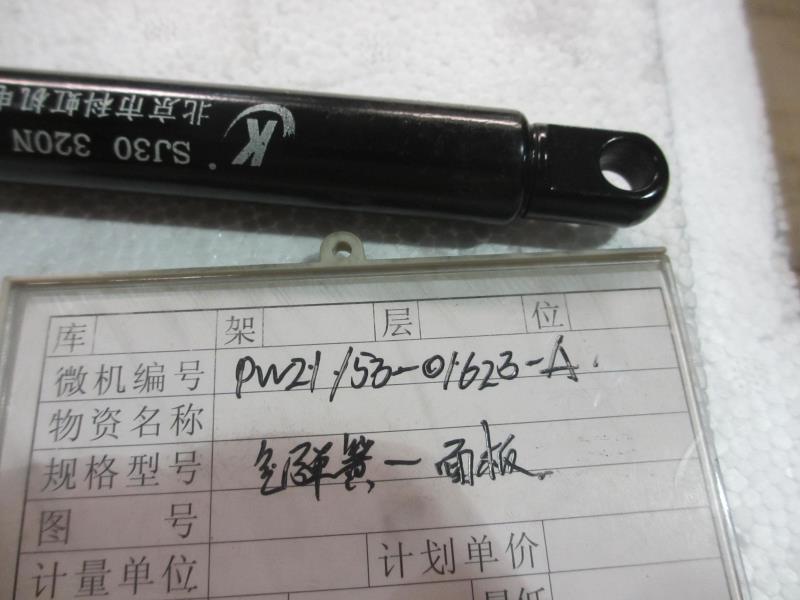 北京市科虹机电
K
SJ30 320N
库 架 层 位
微机编号 PW21.153-01.623-A.
物资名称
规格型号 气弹簧-面板
图 号
计量单位 计划单价